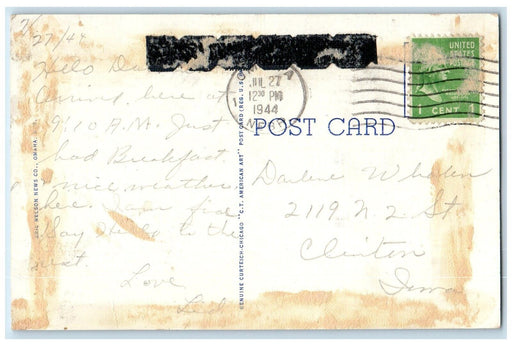 7/
27/44
Hello
Arrived here at
9:10 A.M. Just
had Breakfast.
nice weather
here. I am fine
Say Hello to the
rest.
Love
JUL 27
12 30 PM
1944
UNITED
STATES
POSTAGE
1 CENT 1
POST CARD
Darlene Whalen
2119 N. 2. St
Clinton
Iowa
ERIC NELSON NEWS CO., OMAHA
GENUINE CURTEICH-CHICAGO "C.T. AMERICAN ART" POST CARD (REG. U.S.